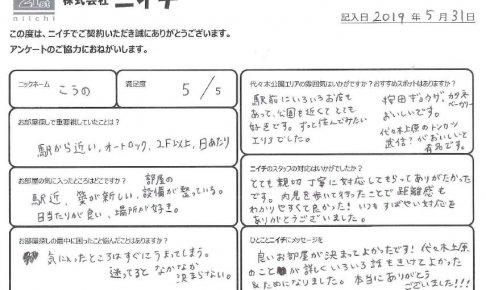 niichi
株式会社 ニイチ
記入日 2019年 5月 31日
この度は、ニイチでご契約いただき誠にありがとうございます。
アンケートのご協力におねがいします。
ニックネーム
こうの
満足度
5 / 5
お部屋探しで重要視していたことは?
駅から近い,オートロック,2F以上,日あたり
お部屋の気に入ったところはどこですか?
駅近、築が新しい、部屋の設備が整っている。
日当たりが良い、場所が好き。
お部屋探しの最中に困ったこと悩んだことはありますか?
気に入ったところはすぐにうまってしまう。
迷ってると なかなか
決まらない。
代々木公園エリアの雰囲気はいかがですか?おすすめスポットはありますか?
駅前にいろいろお店も
あって、公園も近くてとても
好きです。ずっと住んでみたい
エリアでした。
ギョウザ、カタネ
ベーカリー
おいしいです。
代々木上原のトンカツ
武信?がおいしいと
有名です。
ニイチのスタッフの対応はいかがでしたか?
とても親切丁寧に対応してもらってありがたかった
です。内見も歩いて行ったことで距離感も
わかりやすくて良かった!いつもすばやい対応を
ありがとうございました。
ひとことニイチにメッセージを
良いお部屋が決まってよかったです!代々木上原
のことが詳しくいろいろ話をきけてよかった
&ためになりました。本当にありがとう
ございました!!!